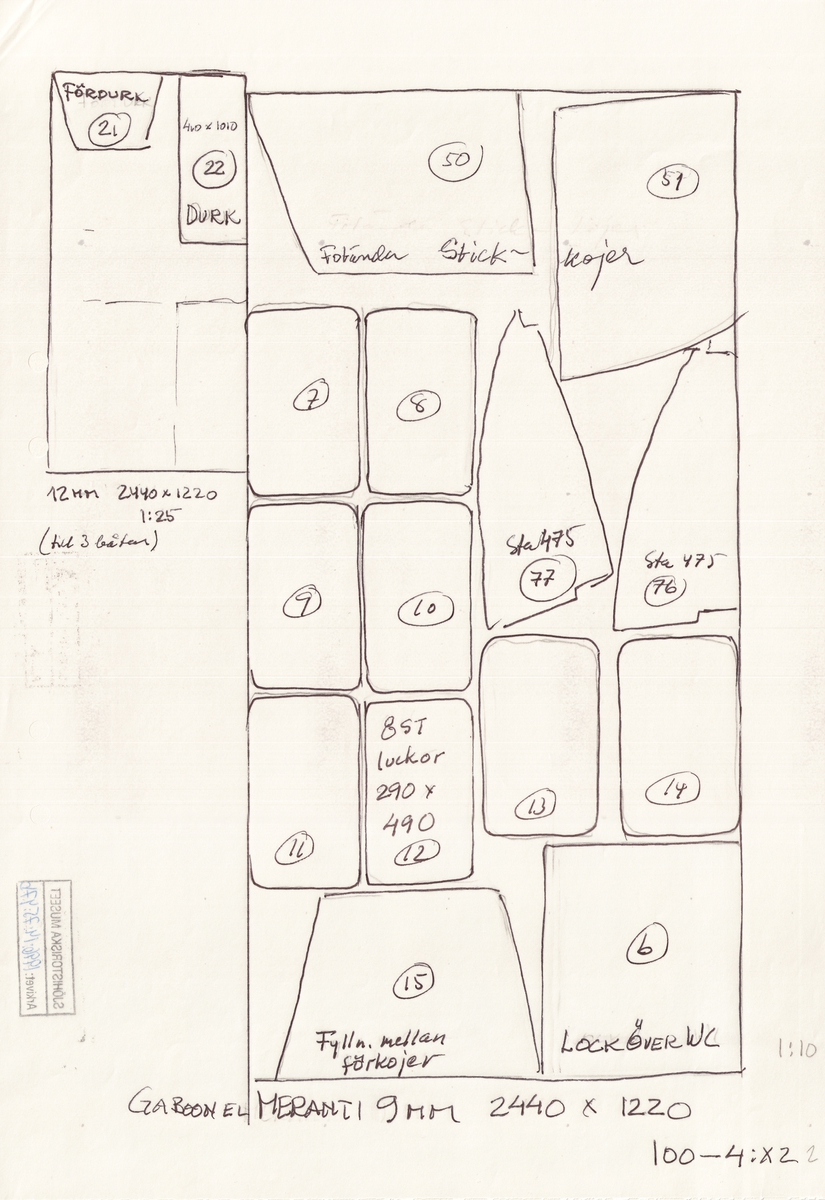 FÖRDURK
21
400 x 1010
22
DURK
50
Fotända Stick-
51
kojer
7
8
12 MM 2440 x 1220
1:25
(till 3 båtar)
Sta 475
77
Sta 475
76
9
10
8 ST
luckor
290 x
490
12
11
13
14
15
Fylln. mellan
förkojer
6
LOCK ÖVER WC
SJÖHISTORISKA MUSEET
1:10
GABOON EL MERANTI 9 MM 2440 X 1220
100-4:X2
2